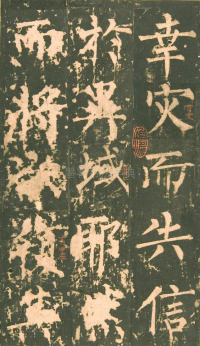 幸灾而失信
於異域耶然
而將欲復